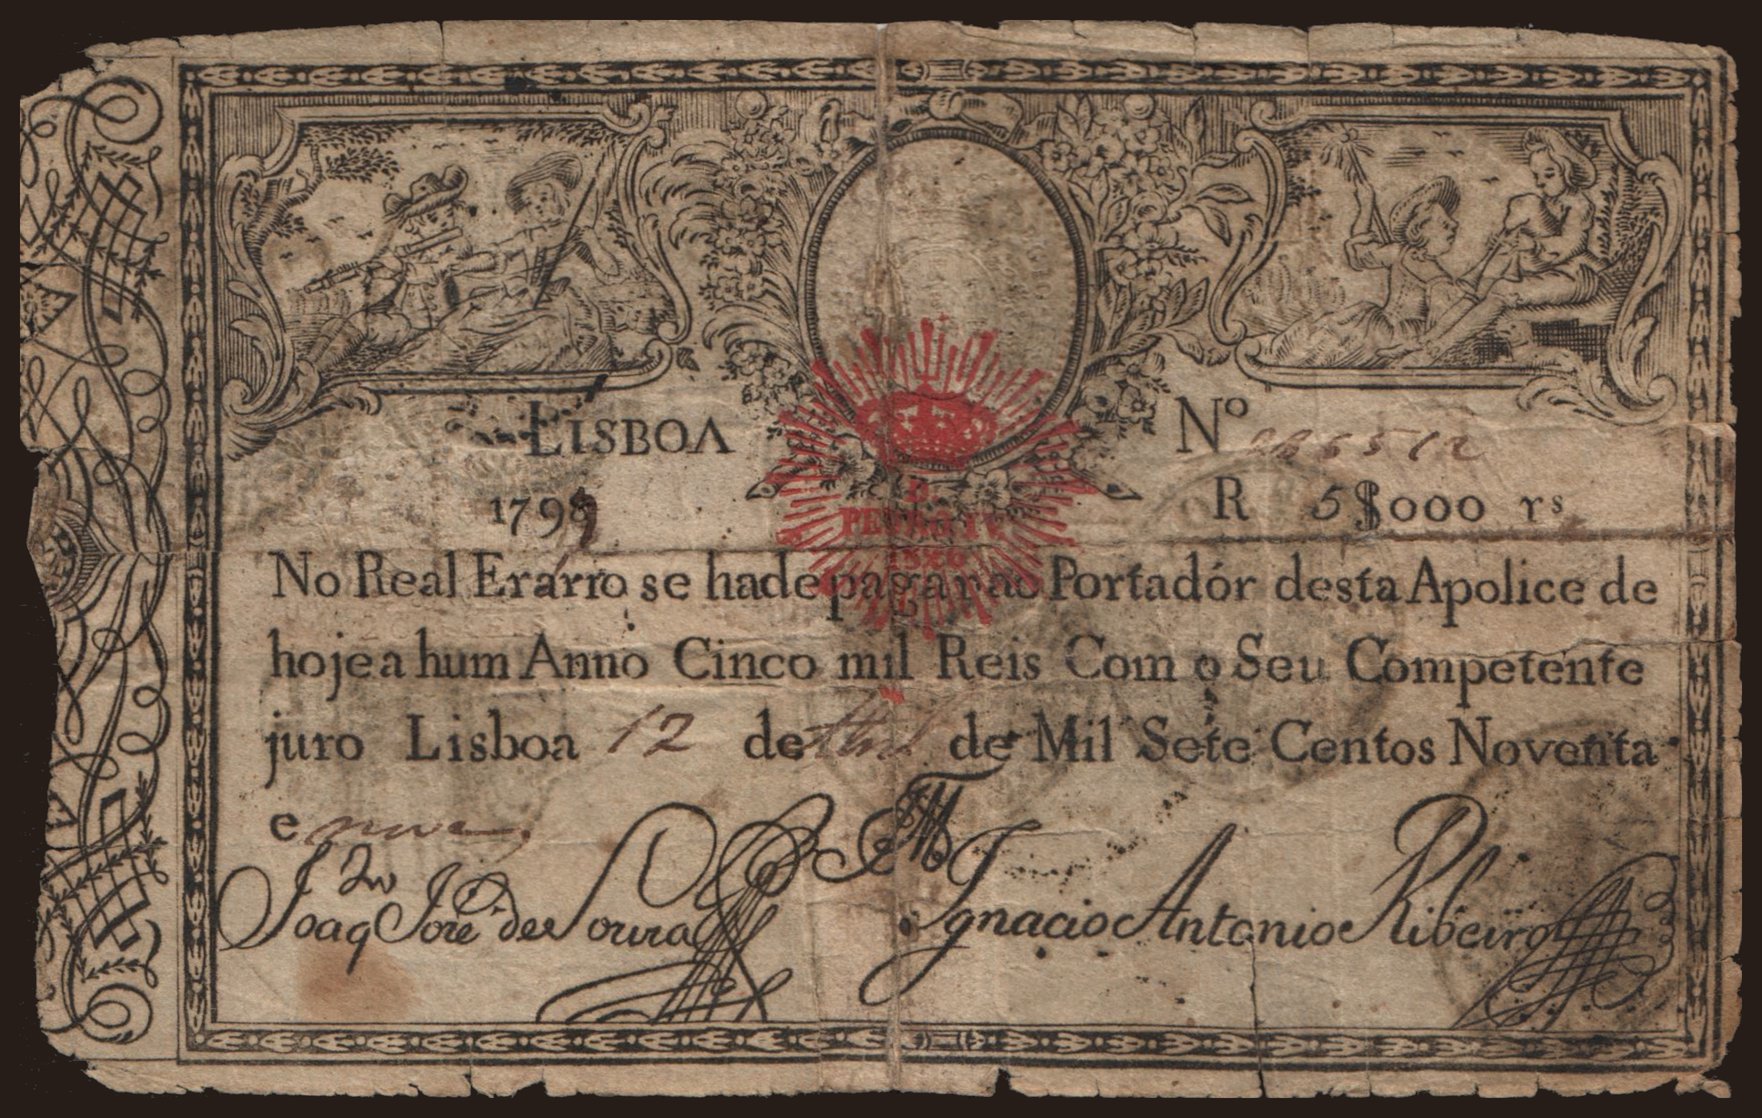 LISBOA
Nº
1799
R 5$000 rs
D.
PEDRO IV
1826
No Real Erario se hade pagar ao Portadór desta Apolice de
hoje a hum Anno Cinco mil Reis Com o Seu Competente
juro Lisboa 12 de Abril de Mil Sete Centos Noventa
e nove
Joaqm José de Souza
Ignacio Antonio Ribeiro